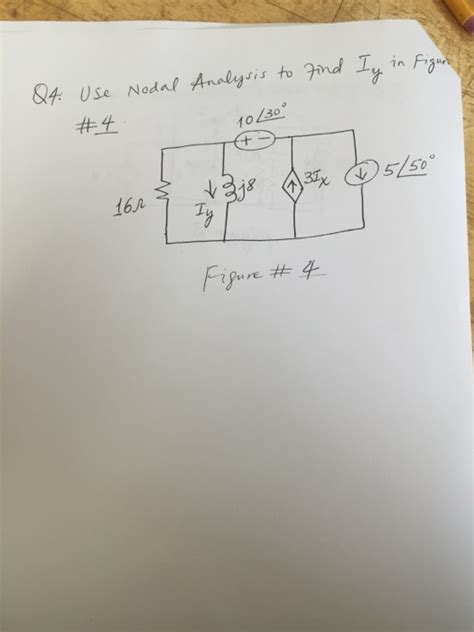 Q4. Use Nodal Analysis to find Iy in Figur
#4.
10∠30°
+ -
16Ω
Iy
j8
3Ix
5∠50°
Figure # 4